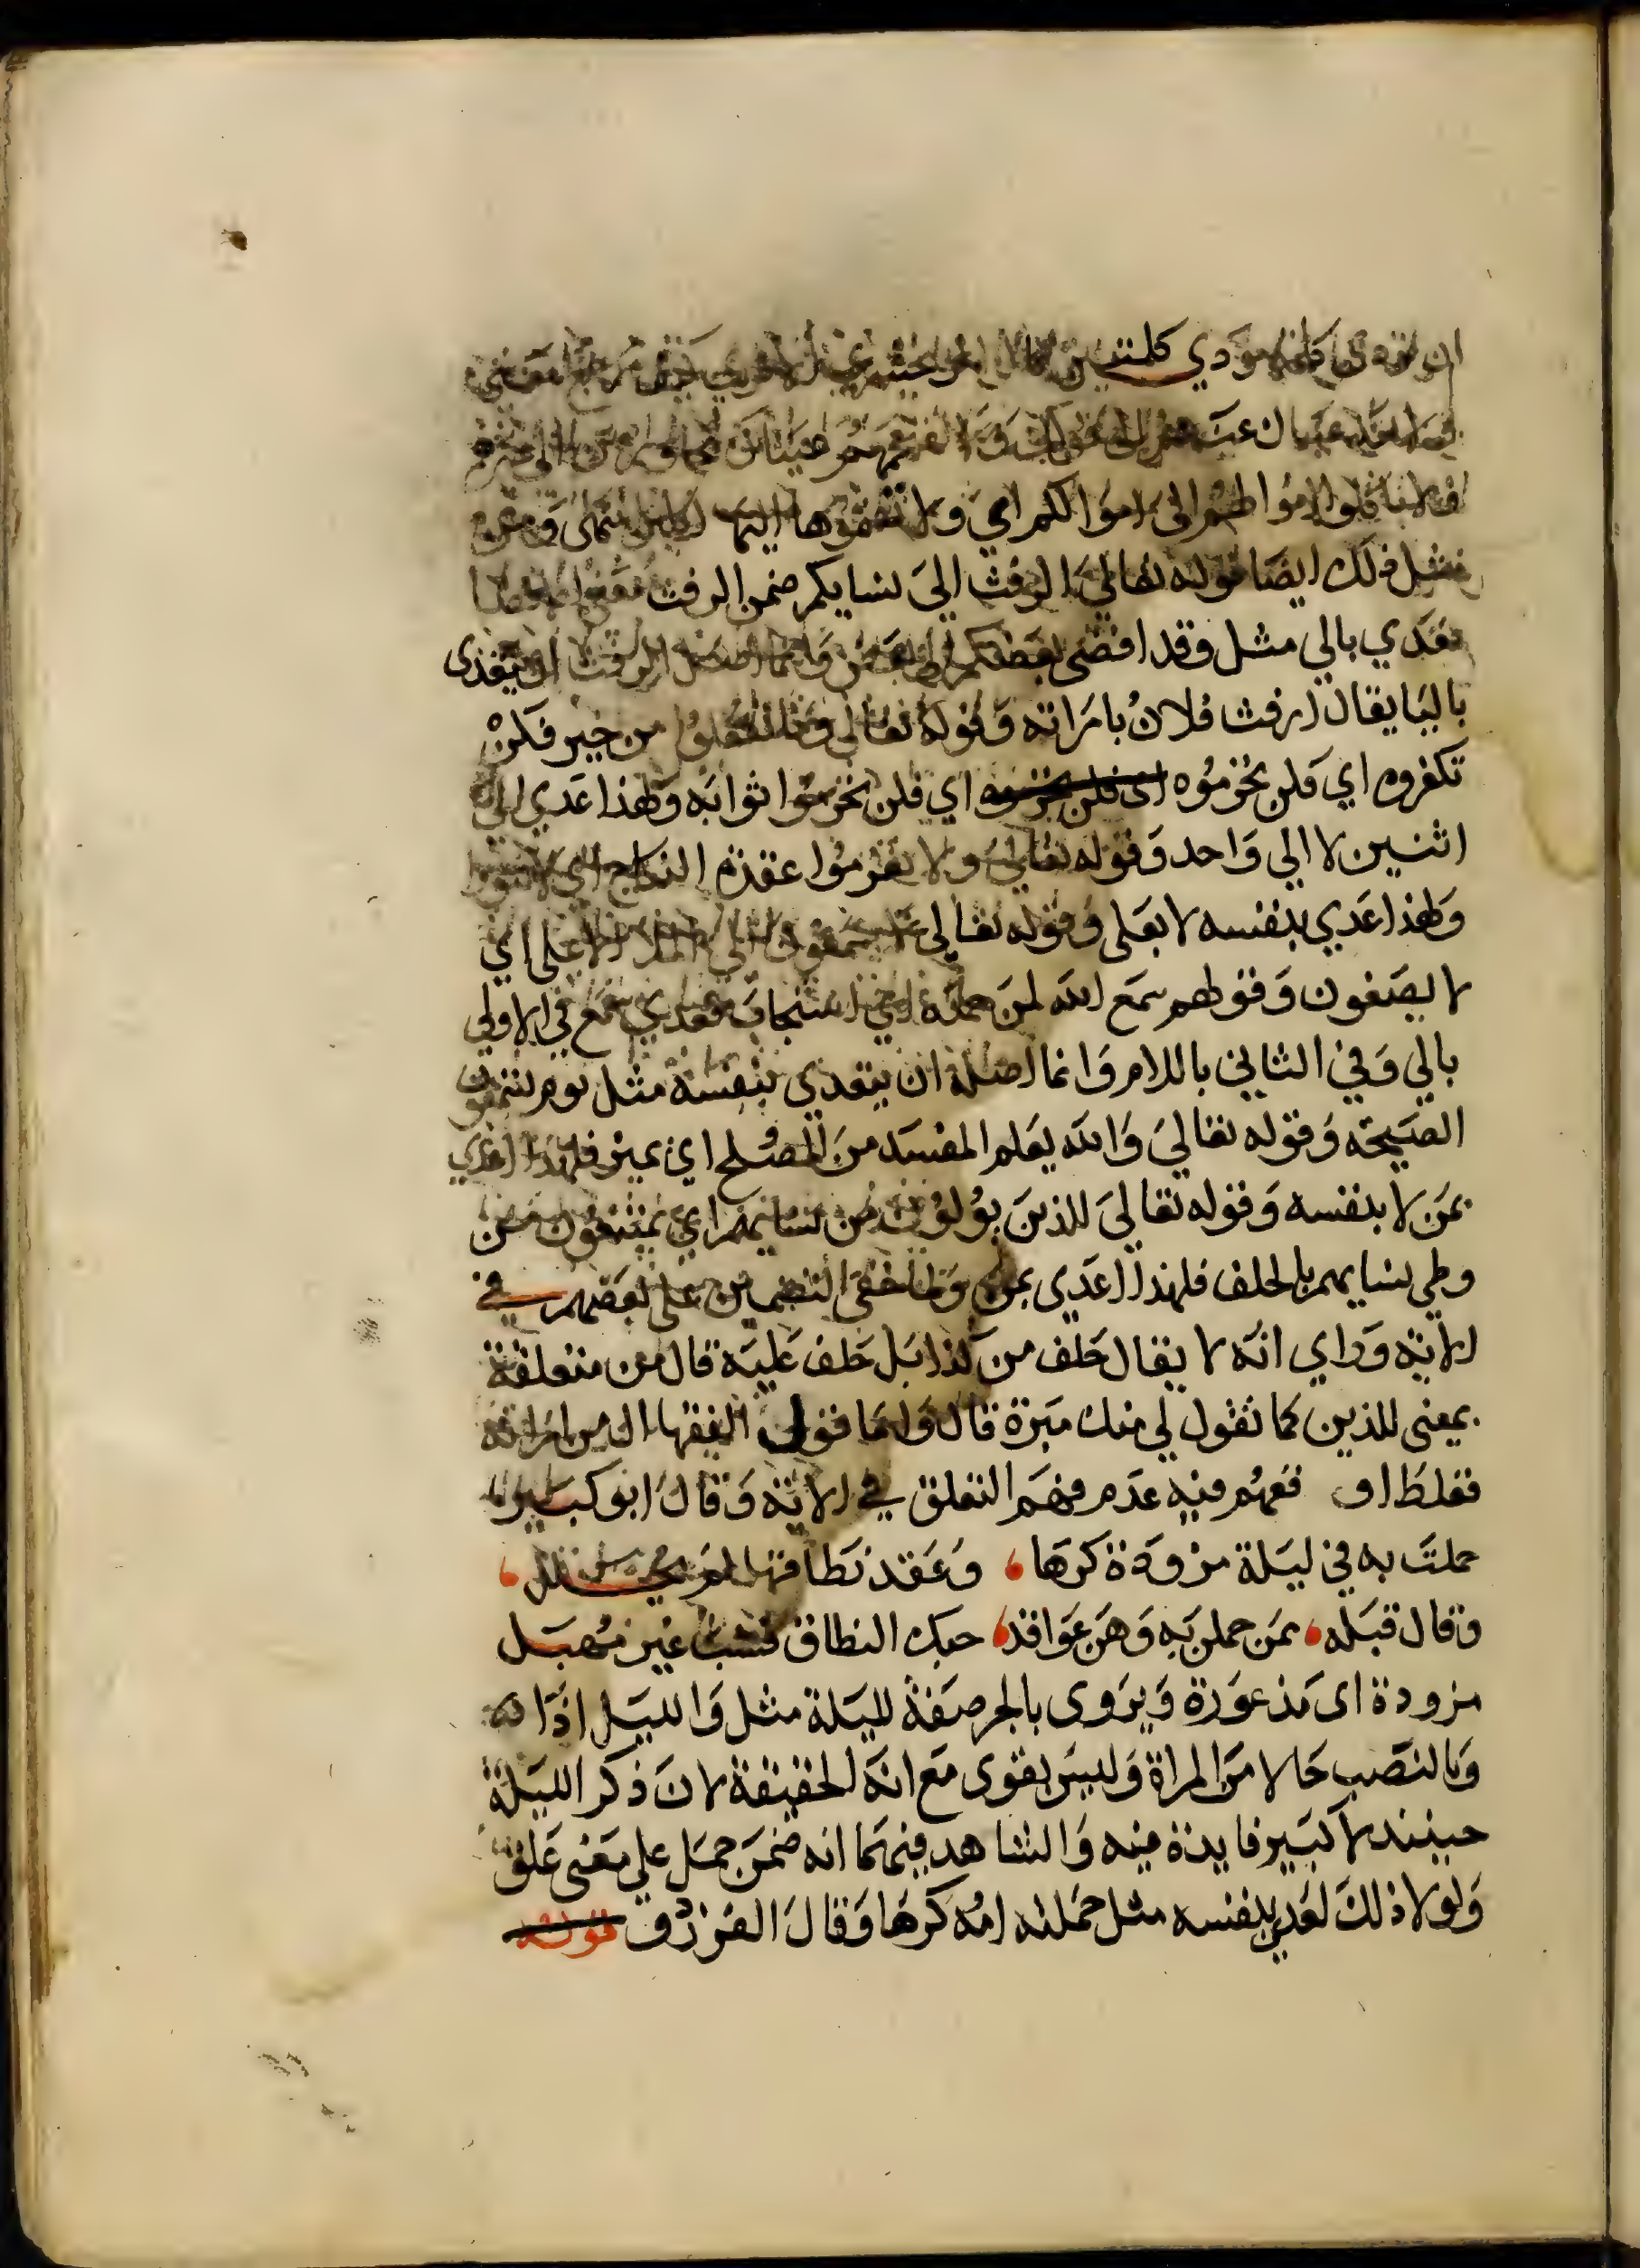 ان تؤدي كلمة مؤدي كلمتين قال الزمخشري الا تري كيف رجع معني
ولا تعد عيناك عنهم الى قولك ولا تقتحمهم عيناك مجاوزتين الى غيرهم
ولا تاكلوا اموالهم الى اموالكم اي ولا تضموها اليها اكلين انتهى ومن
مثل ذلك ايضا قوله تعالي الرفث الي نسايكم ضمن الرفث معني الافضا
فعدي بالي مثل وقد افضى بعضكم الى بعض وانما اصل الرفث ان يتعدى
بالبا يقال ارفث فلان بامراته وقوله تعالى وما تفعلوا من خير فلن
تكفروه اي فلن تحرموه اى فلن تحرموه اي فلن تحرموا ثوابه ولهذا عدي الي
اثنين لا الي واحد وقوله تعالي ولا تعزموا عقدة النكاح اي لا تنووا
ولهذا عدي بنفسه لا بعلى وقوله تعالي لا يسمعون الي الملا الاعلى اي
لا يصغون وقولهم سمع الله لمن حمده اي استجاب فعدي سمع في الاولي
بالي وفي الثاني باللام وانما اصله ان يتعدى بنفسه مثل يوم يسمعون
الصيحة وقوله تعالي والله يعلم المفسد من المصلح اي يميز فلهذا عدي
بمن لا بنفسه وقوله تعالي للذين يولون من نسايهم اي يمتنعون من
وطي نسايهم بالحلف فلهذا عدي بمن ولما خفي التضمين على بعضهم في
الاية وراي انه لا يقال حلف من كذا بل حلف عليه قال من متعلقة
بمعنى للذين كما تقول لي منك مبرة قال واما قول الفقها الى من امراته
فغلط اوقعهم فيه عدم فهم التعلق في الاية وقال ابو كبير
حملت به في ليلة مزودة كرها ، وعقد نطاقها لم يحلل ،
وقال قبله ، ممن حملن به وهن عواقد ، حبك النطاق فشب غير مهبل
مزودة اى مذعورة ويروى بالجر صفة لليلة مثل والليل اذا
وبالنصب حالا من المراة وليس بقوى مع انه الحقيقة لان ذكر الليلة
حينئذ لا كبير فايدة فيه والشاهد فيهما انه ضمن حمل علي معنى علق
ولولا ذلك لعدي بنفسه مثل حملته امه كرها وقال الفرزدق قوله